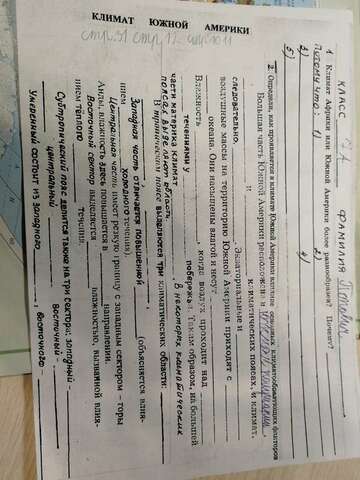 КЛИМАТ ЮЖНОЙ АМЕРИКИ
КЛАСС ФАМИЛИЯ
1. Климат Африки или Южной Америки более разнообразен? Почему?
Потому что: 1) 2)
3) 4)
5)
2. Определи, как проявляется в климате Южной Америки влияние основных климатообразующих факторов
Большая часть Южной Америки расположена в
и климатических поясах, и климат,
следовательно, Экваториальные и
воздушные массы на территорию Южной Америки приходит с
океана. Они насыщены влагой и несут
Влажность , когда воздух проходит над
течениями у побережья. Таким образом, на большей
части материка климат . В некоторых климатических
поясах выделяют области
В тропическом поясе выделяются три климатических области:
Западная часть отвечается повышенной (объясняется влия-
нием холодного течения).
Центральная часть имеет резкую границу с западным сектором – горы
Анды, влажность здесь повышается в направлении.
Восточный сектор выделяется влажностью, вызванной влия-
нием теплого
Субтропический пояс делится также на три сектора: западный -
центральный - Восточный -
Умеренный состоит из западного - и восточного -